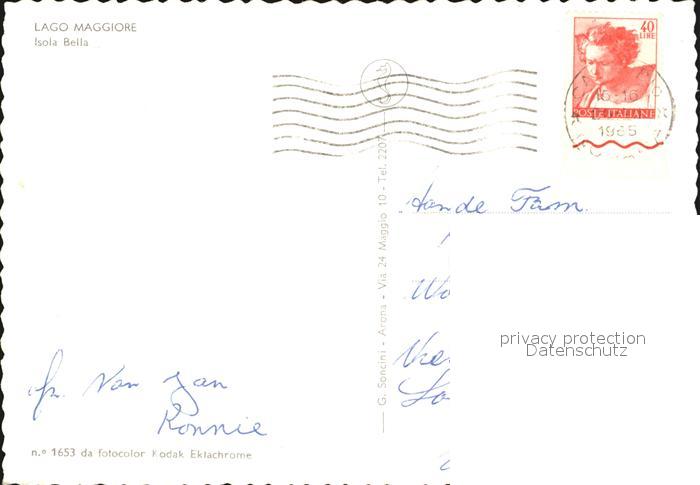 LAGO MAGGIORE
Isola Bella
40
LIRE
POSTE ITALIANE
16-16
1965
G. Soncini - Arona - Via 24 Maggio 10 - Tel. 2207
Aan de Fam.
privacy protection
Datenschutz
gr. Van Jan
Ronnie
n.º 1653 da fotocolor Kodak Ektachrome